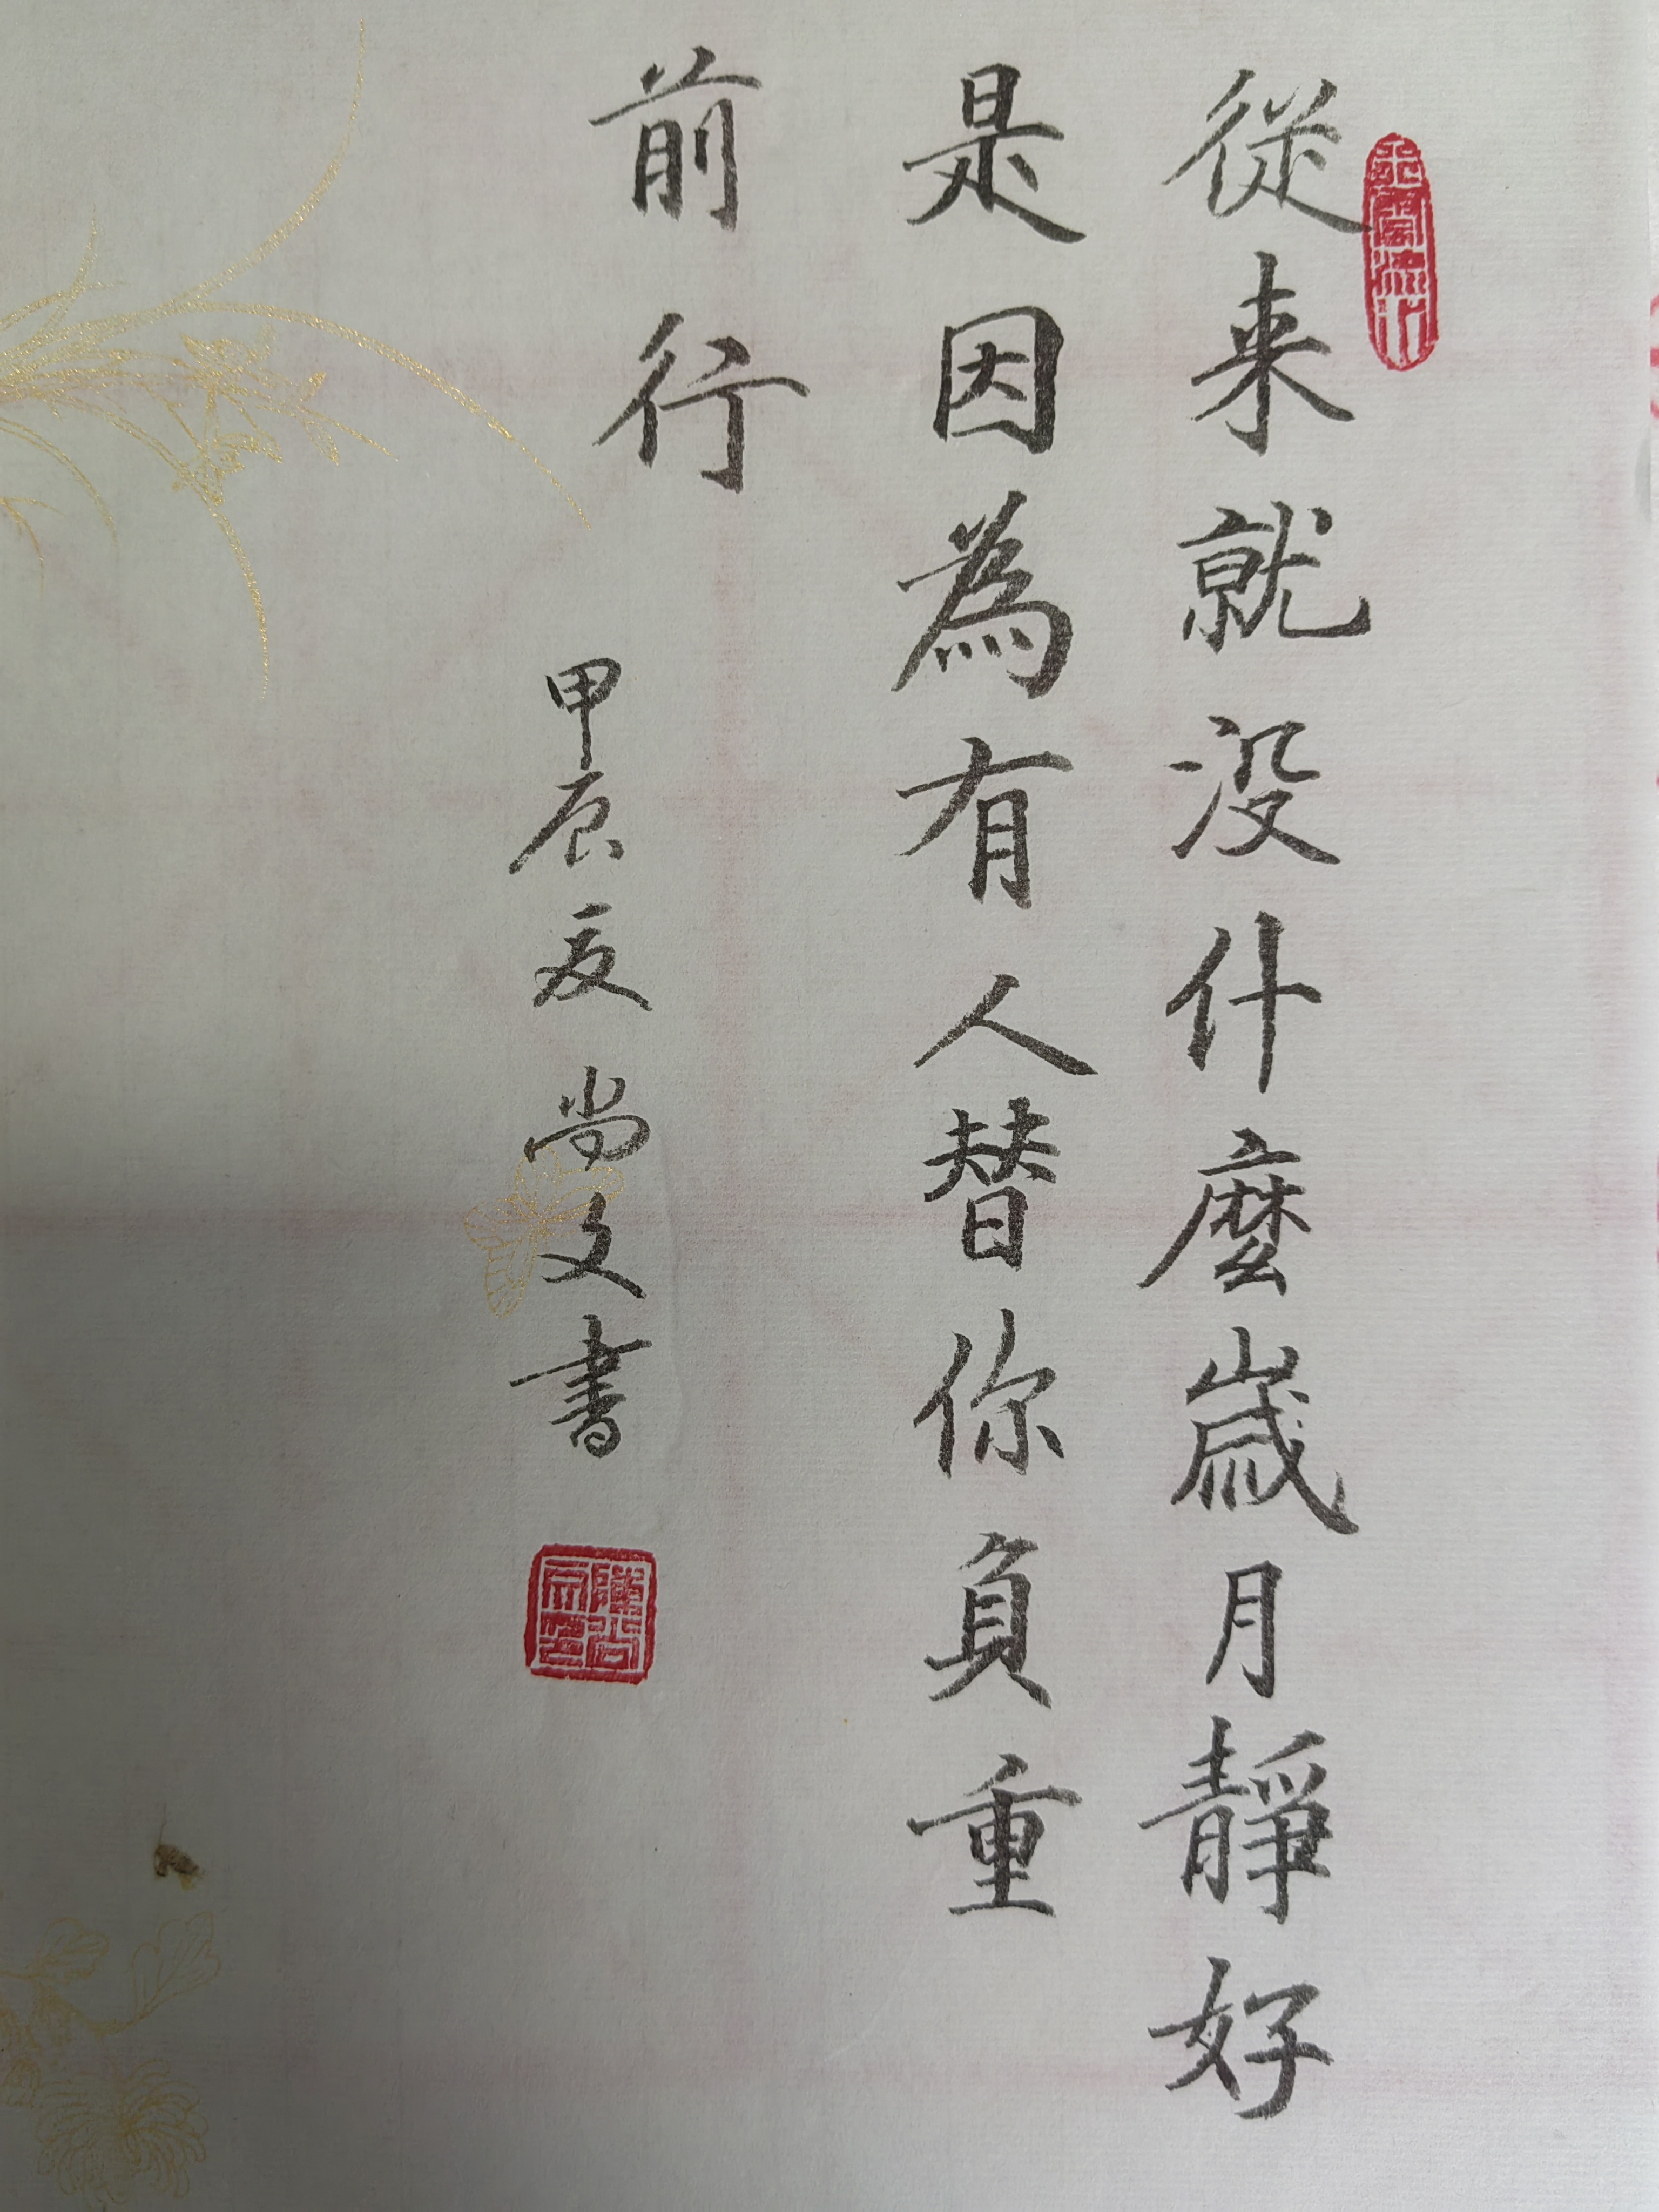 從来就没什麽歲月靜好
是因為有人替你負重
前行
甲辰夏尚文書